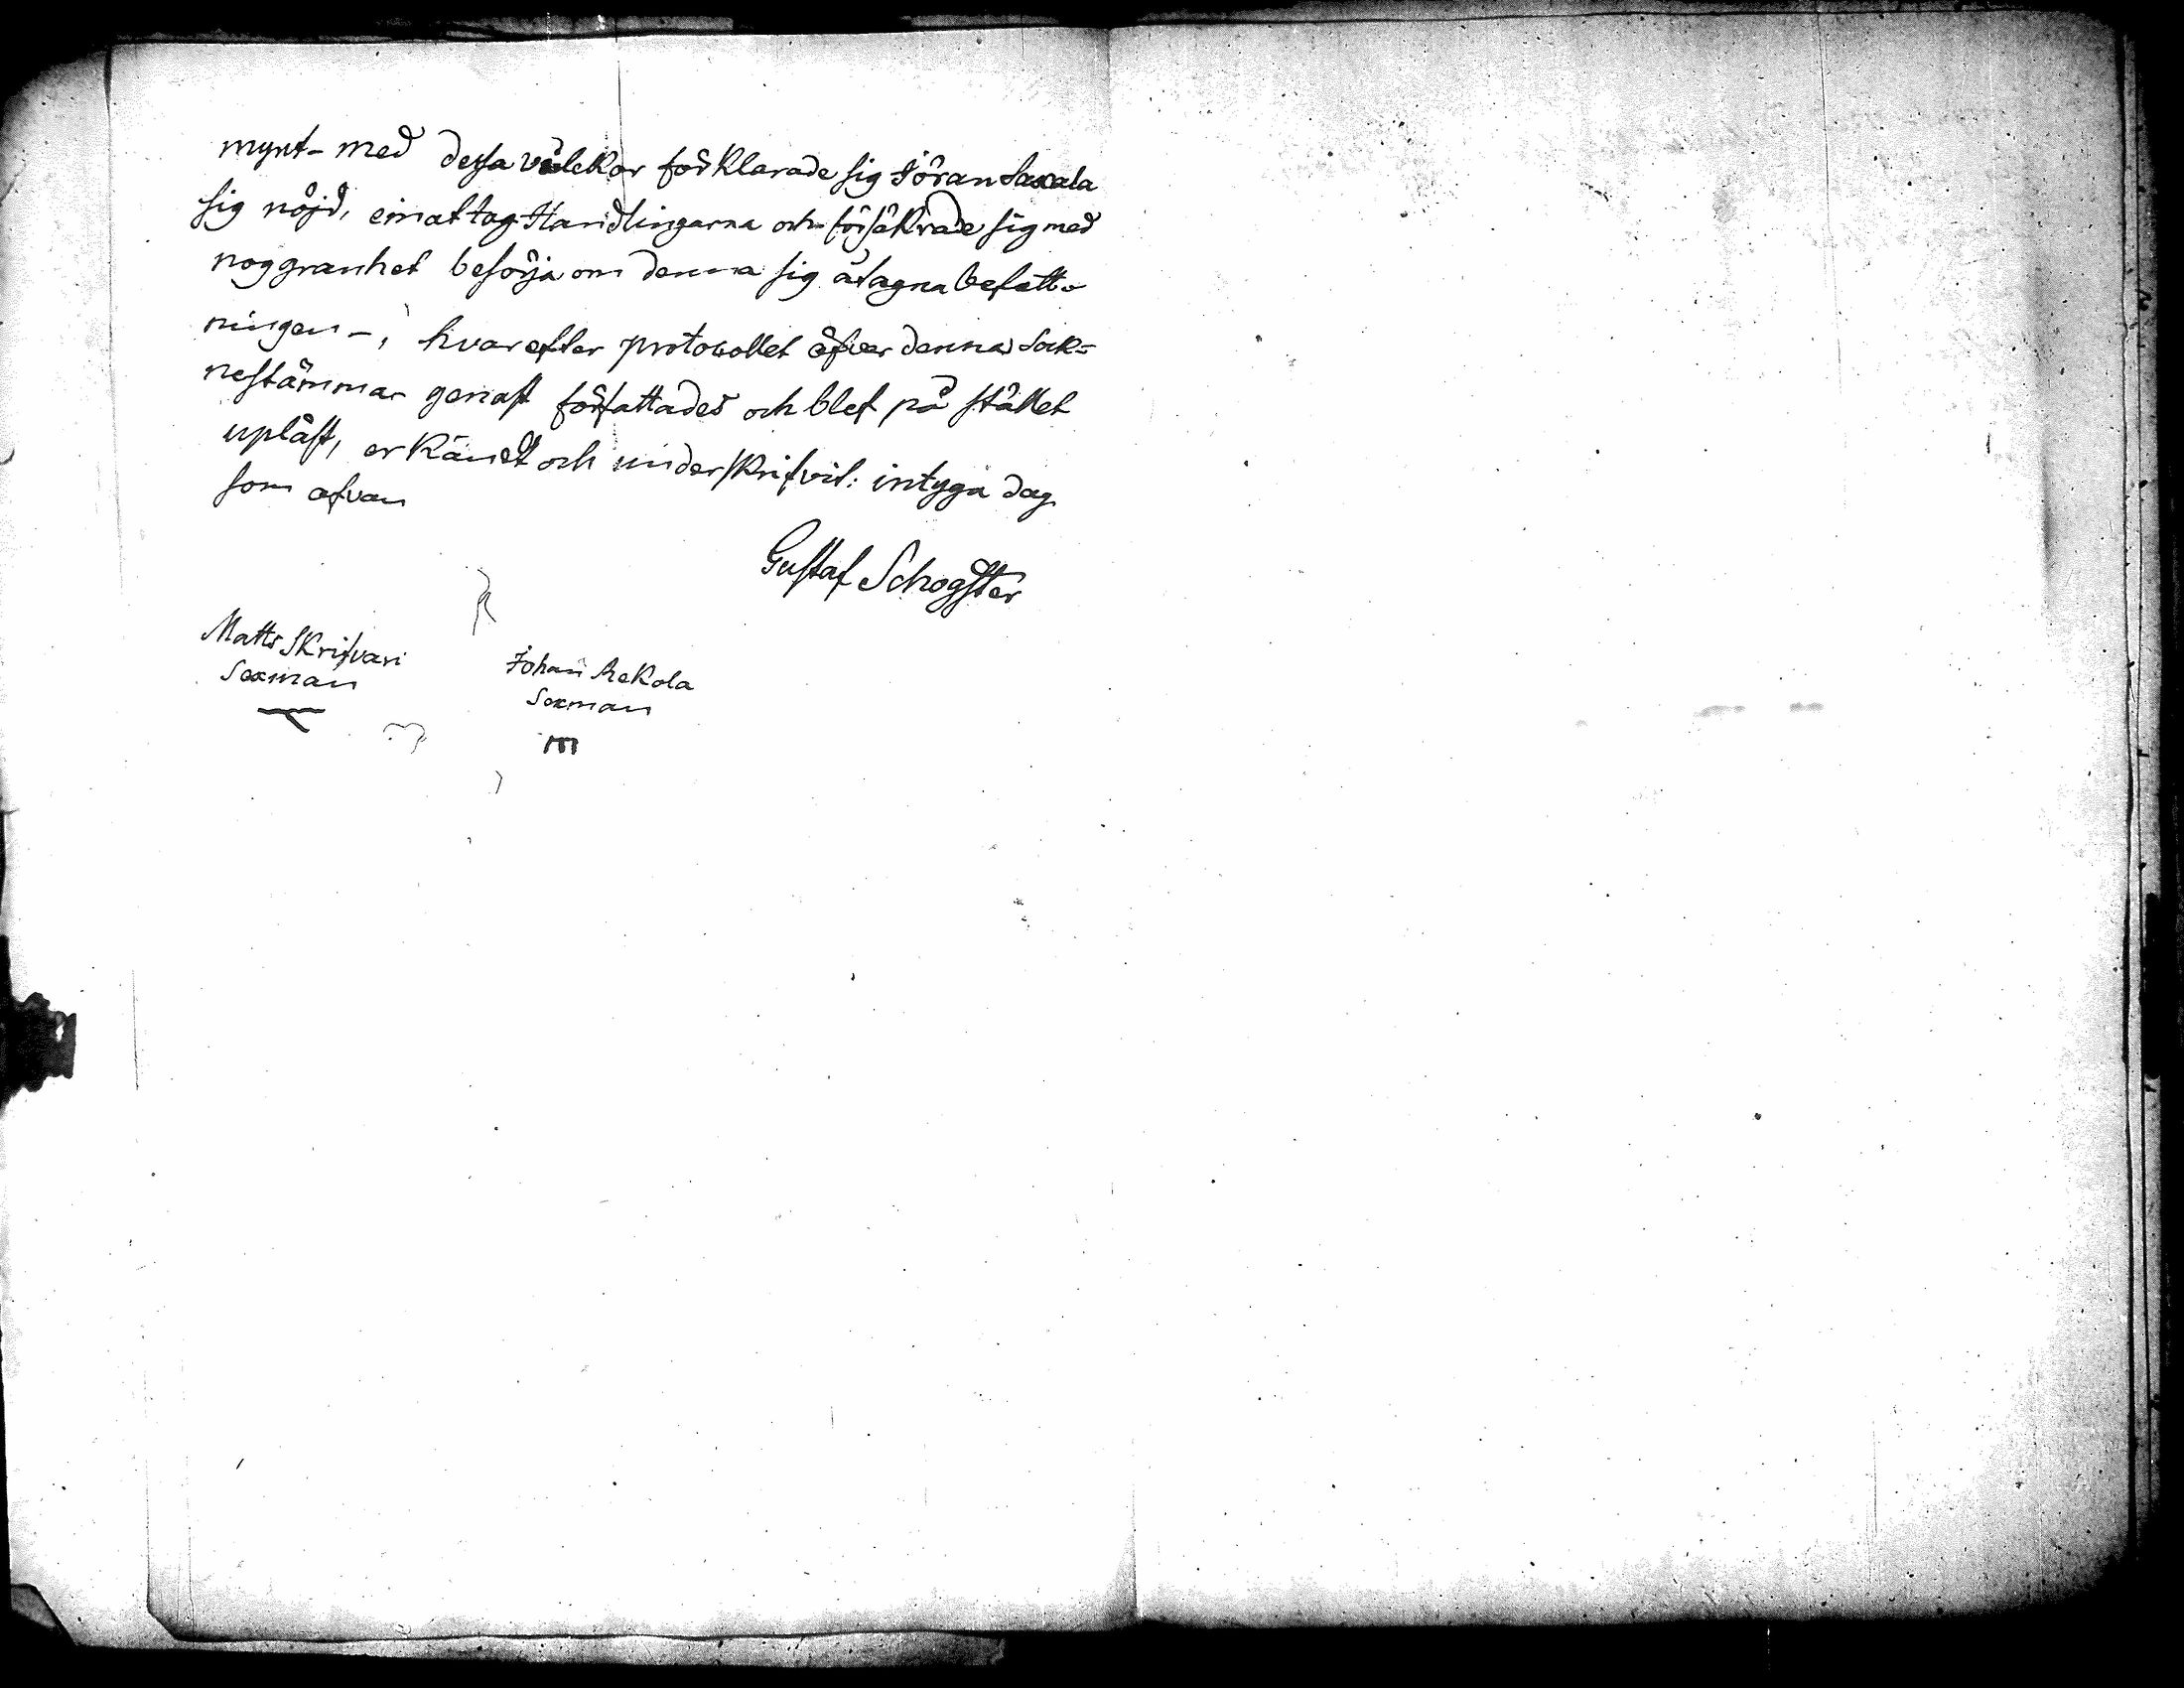 mynt- med dessa vilckor förklarade sig Jöran Saxala
sig nöjd, emottog Handlingarna och försäkrade sig med
noggranhet besörja om denna sig åtagna befatt-
ningen -, hvarefter protocollet öfver denna Sok=
nestämma genast författades och blef på stället
upläst, erkändt och underskrifvit: intyga dag
som ofvan
Gustaf Schogster
Matts Skrifvari
Sexman
Johan Rekola
Sexman